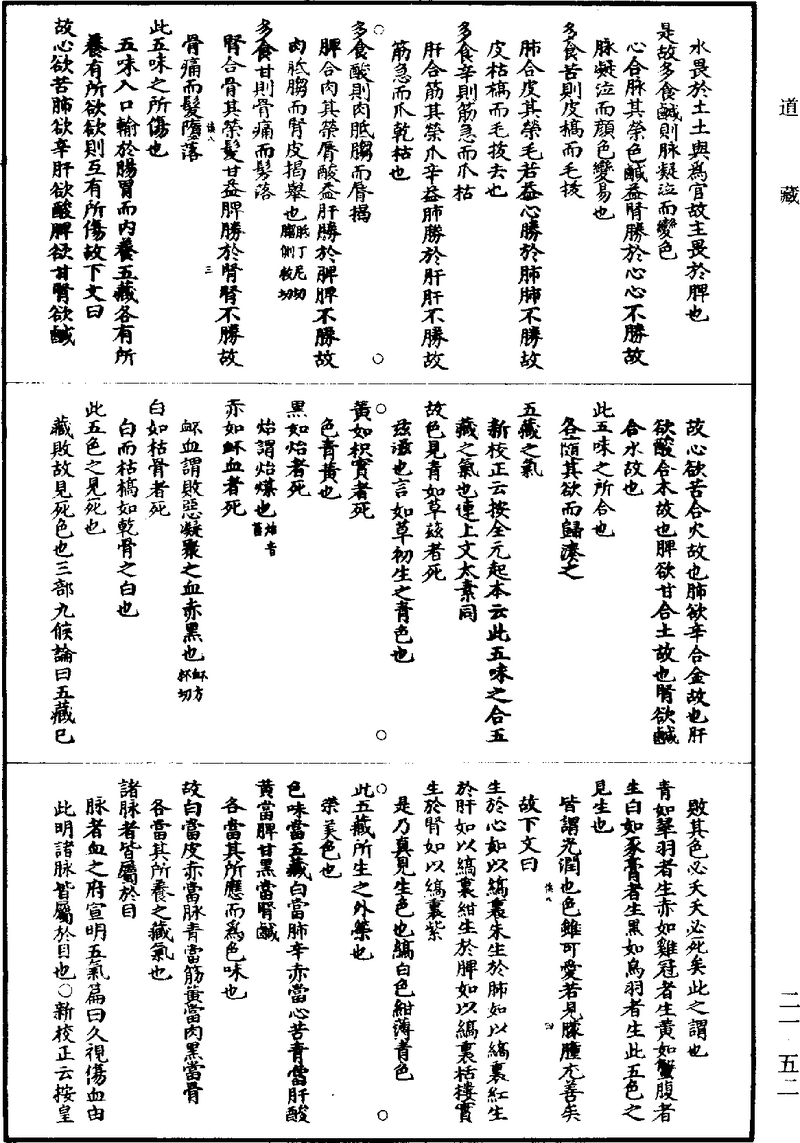 道藏
水畏於土土與為官故主畏於脾也
是故多食鹹則脉凝泣而變色
心合脉其榮色鹹益腎勝於心心不勝故
脉凝泣而顏色變易也
多食苦則皮槁而毛拔
肺合皮其榮毛苦益心勝於肺肺不勝故
皮枯槁而毛拔去也
多食辛則筋急而爪枯
肝合筋其榮爪辛益肺勝於肝肝不勝故
筋急而爪乾枯也
多食酸則肉胝䐢而唇揭
脾合肉其榮唇酸益肝勝於脾脾不勝故
肉胝䐢而唇皮揭舉也胝丁尼切䐢側救切
多食甘則骨痛而髮落
腎合骨其榮髮甘益脾勝於腎腎不勝故
骨痛而髮墮落
此五味之所傷也
五味入口輸於腸胃而内養五藏各有所
養有所欲欲則互有所傷故下文曰
故心欲苦肺欲辛肝欲酸脾欲甘腎欲鹹
故心欲苦合火故也肺欲辛合金故也肝
欲酸合木故也脾欲甘合土故也腎欲鹹
合水故也
此五味之所合也
各隨其欲而歸湊之
五藏之氣
新校正云按全元起本云此五味之合五
藏之氣也連上文太素同
故色見青如草兹者死
兹滋也言如草初生之青色也
黃如枳實者死
色青黃也
黑如炲者死
炲謂炲煤也炲音苔
赤如衃血者死
衃血謂敗惡凝聚之血赤黑也衃方杯切
白如枯骨者死
白而枯槁如乾骨之白也
此五色之見死也
藏敗故見死色也三部九候論曰五藏已
敗其色必夭夭必死矣此之謂也
青如翠羽者生赤如雞冠者生黃如蟹腹者
生白如豕膏者生黑如烏羽者生此五色之
見生也
皆謂光潤也色雖可愛若見朦朧尤善矣
故下文曰
生於心如以縞裹朱生於肺如以縞裹紅生
於肝如以縞裹紺生於脾如以縞裹栝樓實
生於腎如以縞裹紫
是乃真見生色也縞白色紺薄青色
此五藏所生之外榮也
榮美色也
色味當五藏白當肺辛赤當心苦青當肝酸
黃當脾甘黑當腎鹹
各當其所應而為色味也
故白當皮赤當脉青當筋黃當肉黑當骨
各當其所養之藏氣也
諸脉者皆屬於目
脉者血之府宣明五氣篇曰久視傷血由
此明諸脉皆屬於目也○新校正云按皇
二一·五二